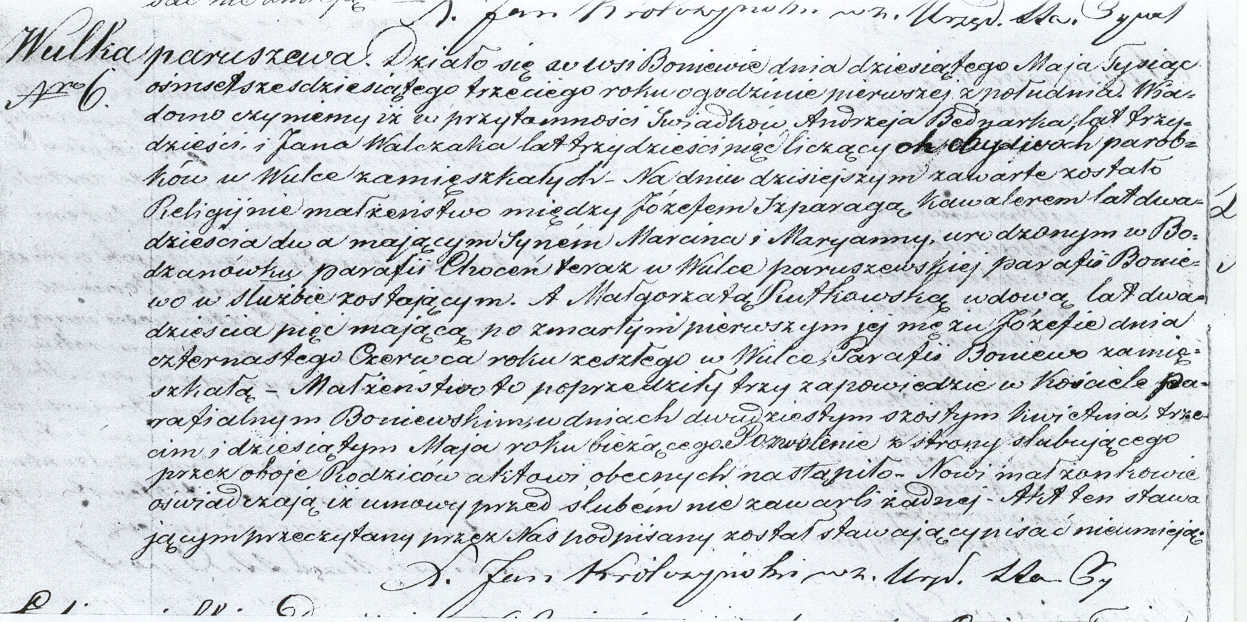 X. Jan Krółczyński wz. Urzęd. Sta. Cywil
Wulka paruszewa. Działo się we wsi Boniewie dnia dziesiątego Maja Tysiąc
Nro 6. ośmsetszesdziesiątego trzeciego roku o godzinie pierwszej z południa. Wia-
domo czyniemy iż w przytomności Świadków Andrzeja Bednarka, lat trzy-
dzieści, i Jana Walczaka lat trzydzieści pięć liczących, obydwoch parob-
ków w Wulce zamięszkałych – Na dniu dzisiejszym zawarte zostało
Religijnie małżeństwo między Józefem Szparagą, kawalerem lat dwa-
dzieścia dwa mającym Synem Marcina i Maryanny, urodzonym w Bo-
dzanówku parafii Choceń teraz w Wulce paruszewskiej parafii Bonie-
wo w służbie zostającym. A Małgorzatą Rutkowską wdową lat dwa-
dzieścia pięć mającą, po zmarłym pierwszym jej mężu Józefie dnia
czternastego Czerwca roku zeszłego w Wulce, Parafii Boniewo zamię-
szkałą – Małżeństwo to poprzedziły trzy zapowiedzie w Kościele pa-
rafialnym Boniewskim, w dniach dwudziestym szóstym Kwietnia, trze-
cim i dziesiątym Maja roku bieżącego. Pozwolenie z strony ślubującego
przez oboje Rodziców aktowi obecnych nastąpiło – Nowi małżonkowie
oświadczają iż umowy przed ślubem nie zawarli żadnej – Akt ten stawa
jącym przeczytany przez Nas podpisany został stawający pisać nieumieją.
X. Jan Krółczyński wz. Urzd. Sta Cy